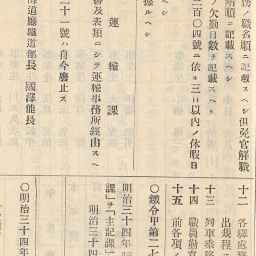 ノ職名順ニ記載スヘシ但免官解職
順ニ記載スヘシ
ノ欠勤日數ヲ記載スヘシ
百〇四號ニ依ル三日以内ノ休暇日
據ルヘシ
運輸課
及表類ニシテ運輸事務所經由スヘ
三十一號ハ自今廢止ス
海道廳鐵道部長 國澤能長
十二 各驛處
出務規程
十三 列車乘務
十四 職員勤
十五 前各項ノ
甲第二七
明治三十四年
課」ヲ「主記課
明治三十四
〇明治三十四年